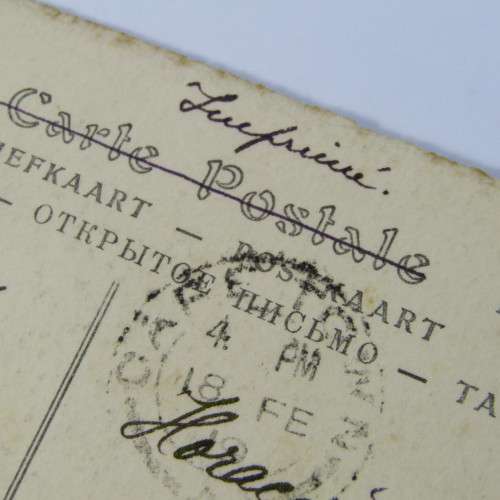 Imprimé.
Carte Postale
IEFKAART — POSTKAART
— ОТКРЫТОЕ ПИСЬМО — TA
CAPE TOWN
4. PM
18 FE